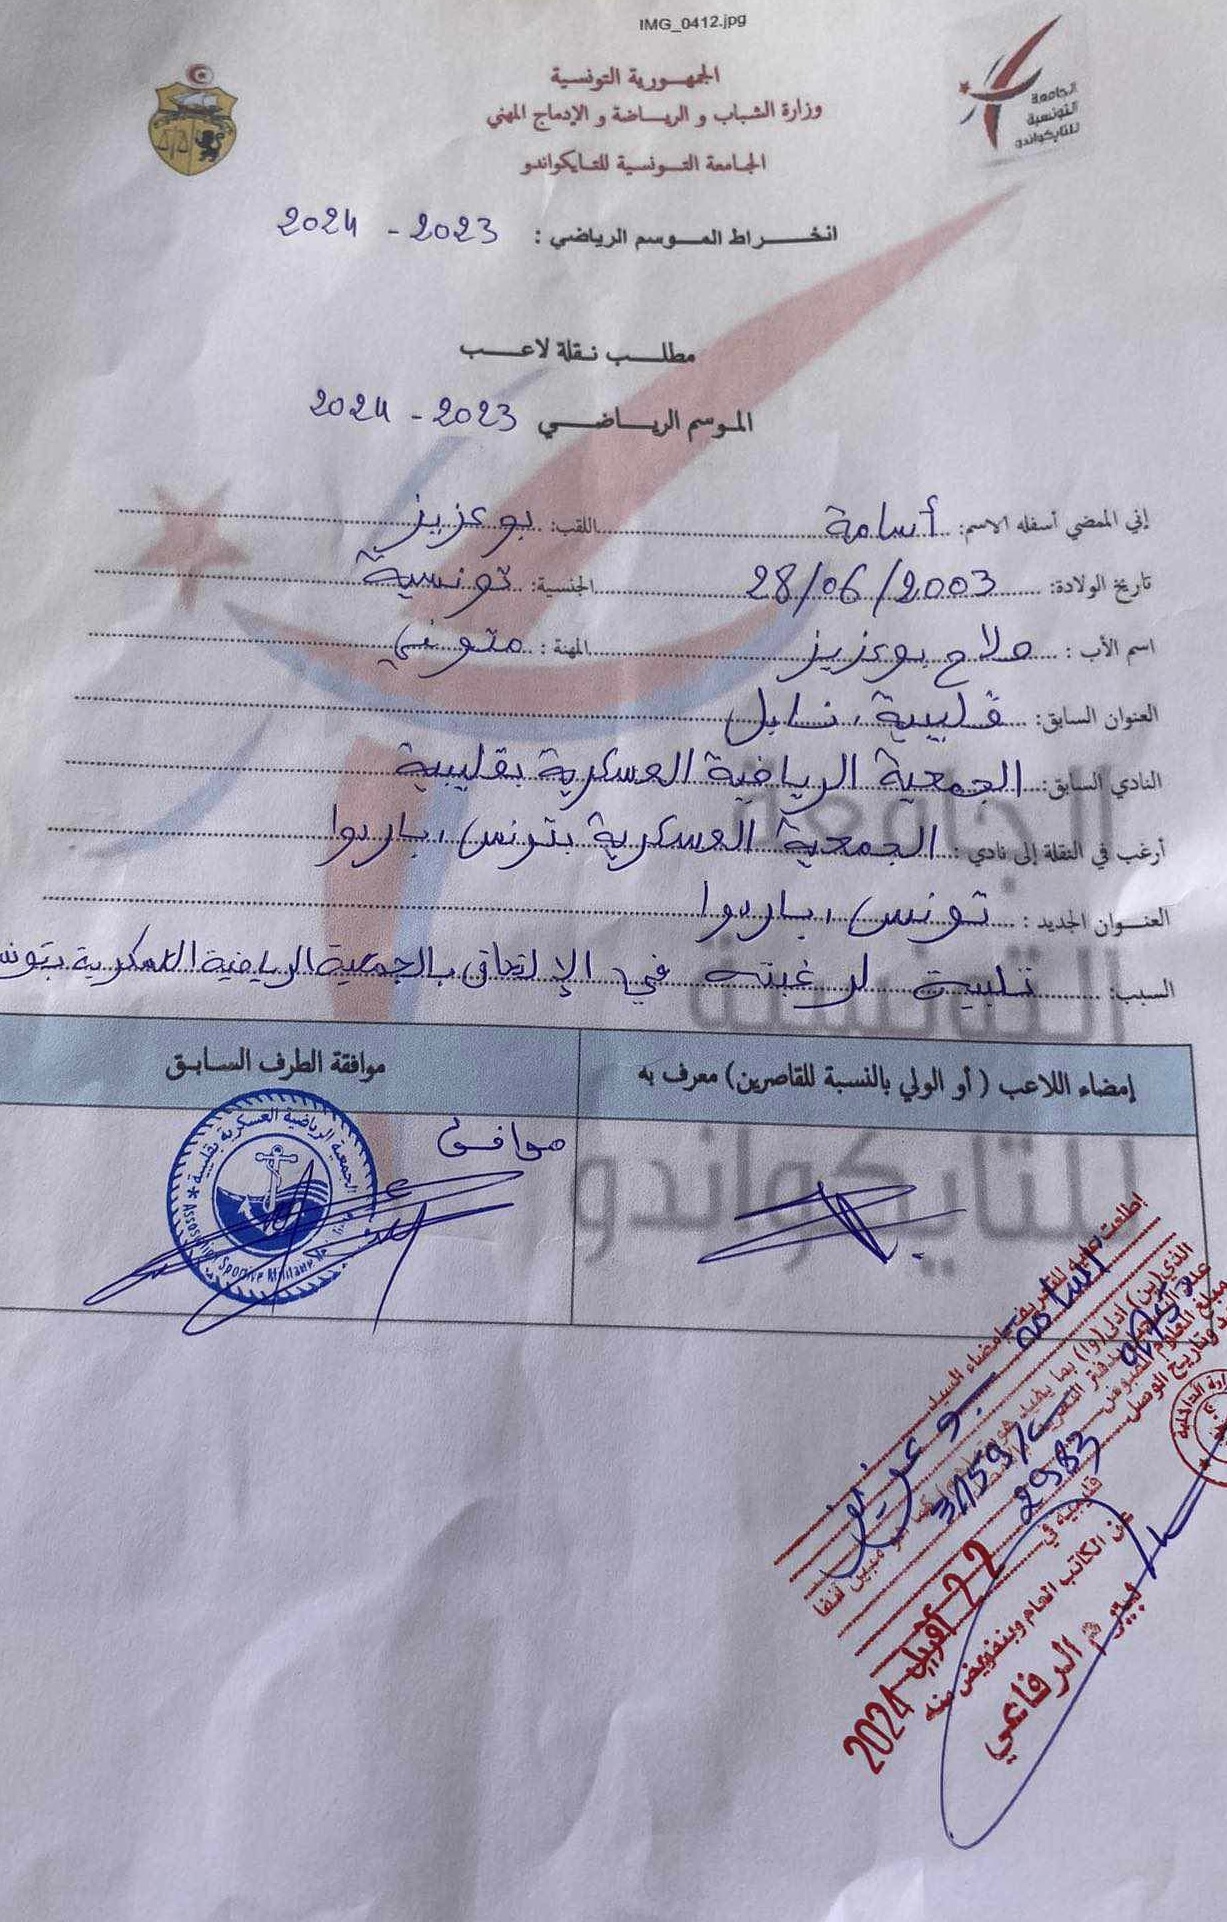 IMG_0412.jpg
الجمهورية التونسية
وزارة الشباب و الرياضة و الإدماج المهني
الجامعة التونسية للتايكواندو
الجامعة
التونسية
للتايكواندو
انخراط الموسم الرياضي : 2023 - 2024
مطلب نقلة لاعب
الموسم الرياضي 2023 - 2024
إني الممضي أسفله الاسم: أسامة اللقب: بوعزيز
تاريخ الولادة: 28/06/2003 الجنسية: تونسية
اسم الأب : صلاح بوعزيز المهنة :
العنوان السابق: قليبية، نابل
النادي السابق: الجمعية الرياضية العسكرية بقليبية
أرغب في النقلة إلى نادي : الجمعية العسكرية بتونس، باردوا
العنوان الجديد : تونس، باردوا
السبب: تلبية لرغبته في الإلتحاق بالجمعية الرياضية العسكرية بتونس
إمضاء اللاعب ( أو الولي بالنسبة للقاصرين) معرف به
موافقة الطرف السابق
موافق
الجمعية الرياضية العسكرية بقليبية
Association Sportive Militaire
الجامعة
التونسية
للتايكواندو
بإمضاء السيد
أسامة
بوعزيز
2983
قليبية في
22 أفريل 2024
عن الكاتب العام وبتفويض منه
الرفاعي